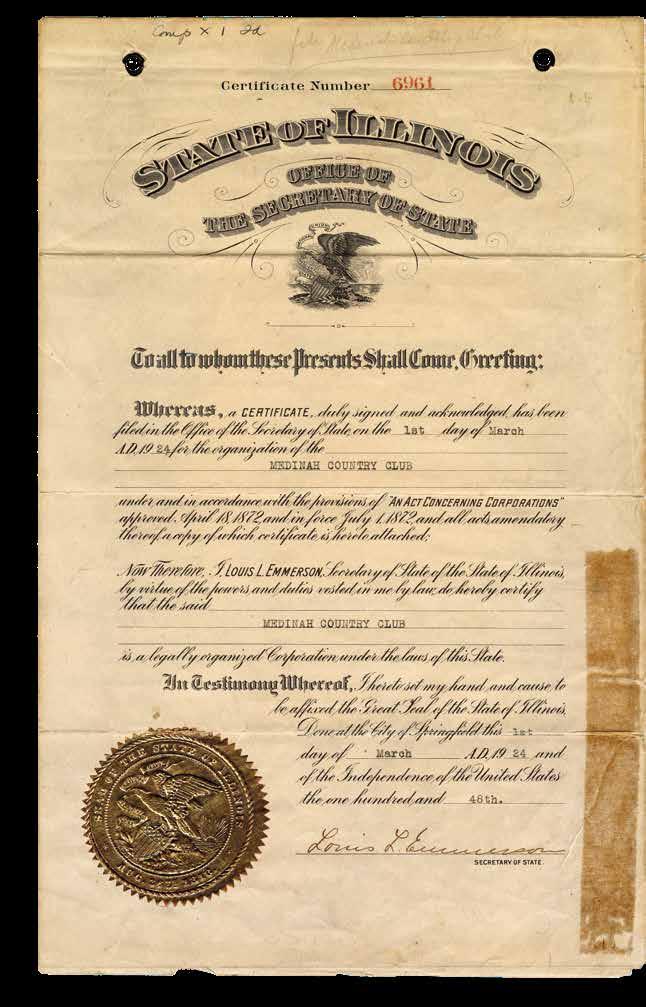 Comp x 1 2d
Certificate Number 6961
STATE OF ILLINOIS
OFFICE OF
THE SECRETARY OF STATE
To all to whom these Presents Shall Come, Greeting:
Whereas, a CERTIFICATE, duly signed and acknowledged, has been
filed in the Office of the Secretary of State, on the 1st day of March
A.D. 19 24, for the organization of the
MEDINAH COUNTRY CLUB
under and in accordance with the provisions of "AN ACT CONCERNING CORPORATIONS"
approved, April 18, 1872, and in force July 1, 1872, and all acts amendatory
thereof, a copy of which certificate is hereto attached;
Now Therefore, I, LOUIS L. EMMERSON, Secretary of State of the State of Illinois,
by virtue of the powers and duties vested in me by law, do hereby certify
that the said
MEDINAH COUNTRY CLUB
is a legally organized Corporation under the laws of this State.
In Testimony Whereof, I hereto set my hand and cause to
be affixed the Great Seal of the State of Illinois,
Done at the City of Springfield this 1st
day of March A.D. 19 24 and
of the Independence of the United States
the one hundred and 48th.
SEAL OF THE STATE OF ILLINOIS
AUG. 26TH 1818
Louis L. Emmerson
SECRETARY OF STATE.